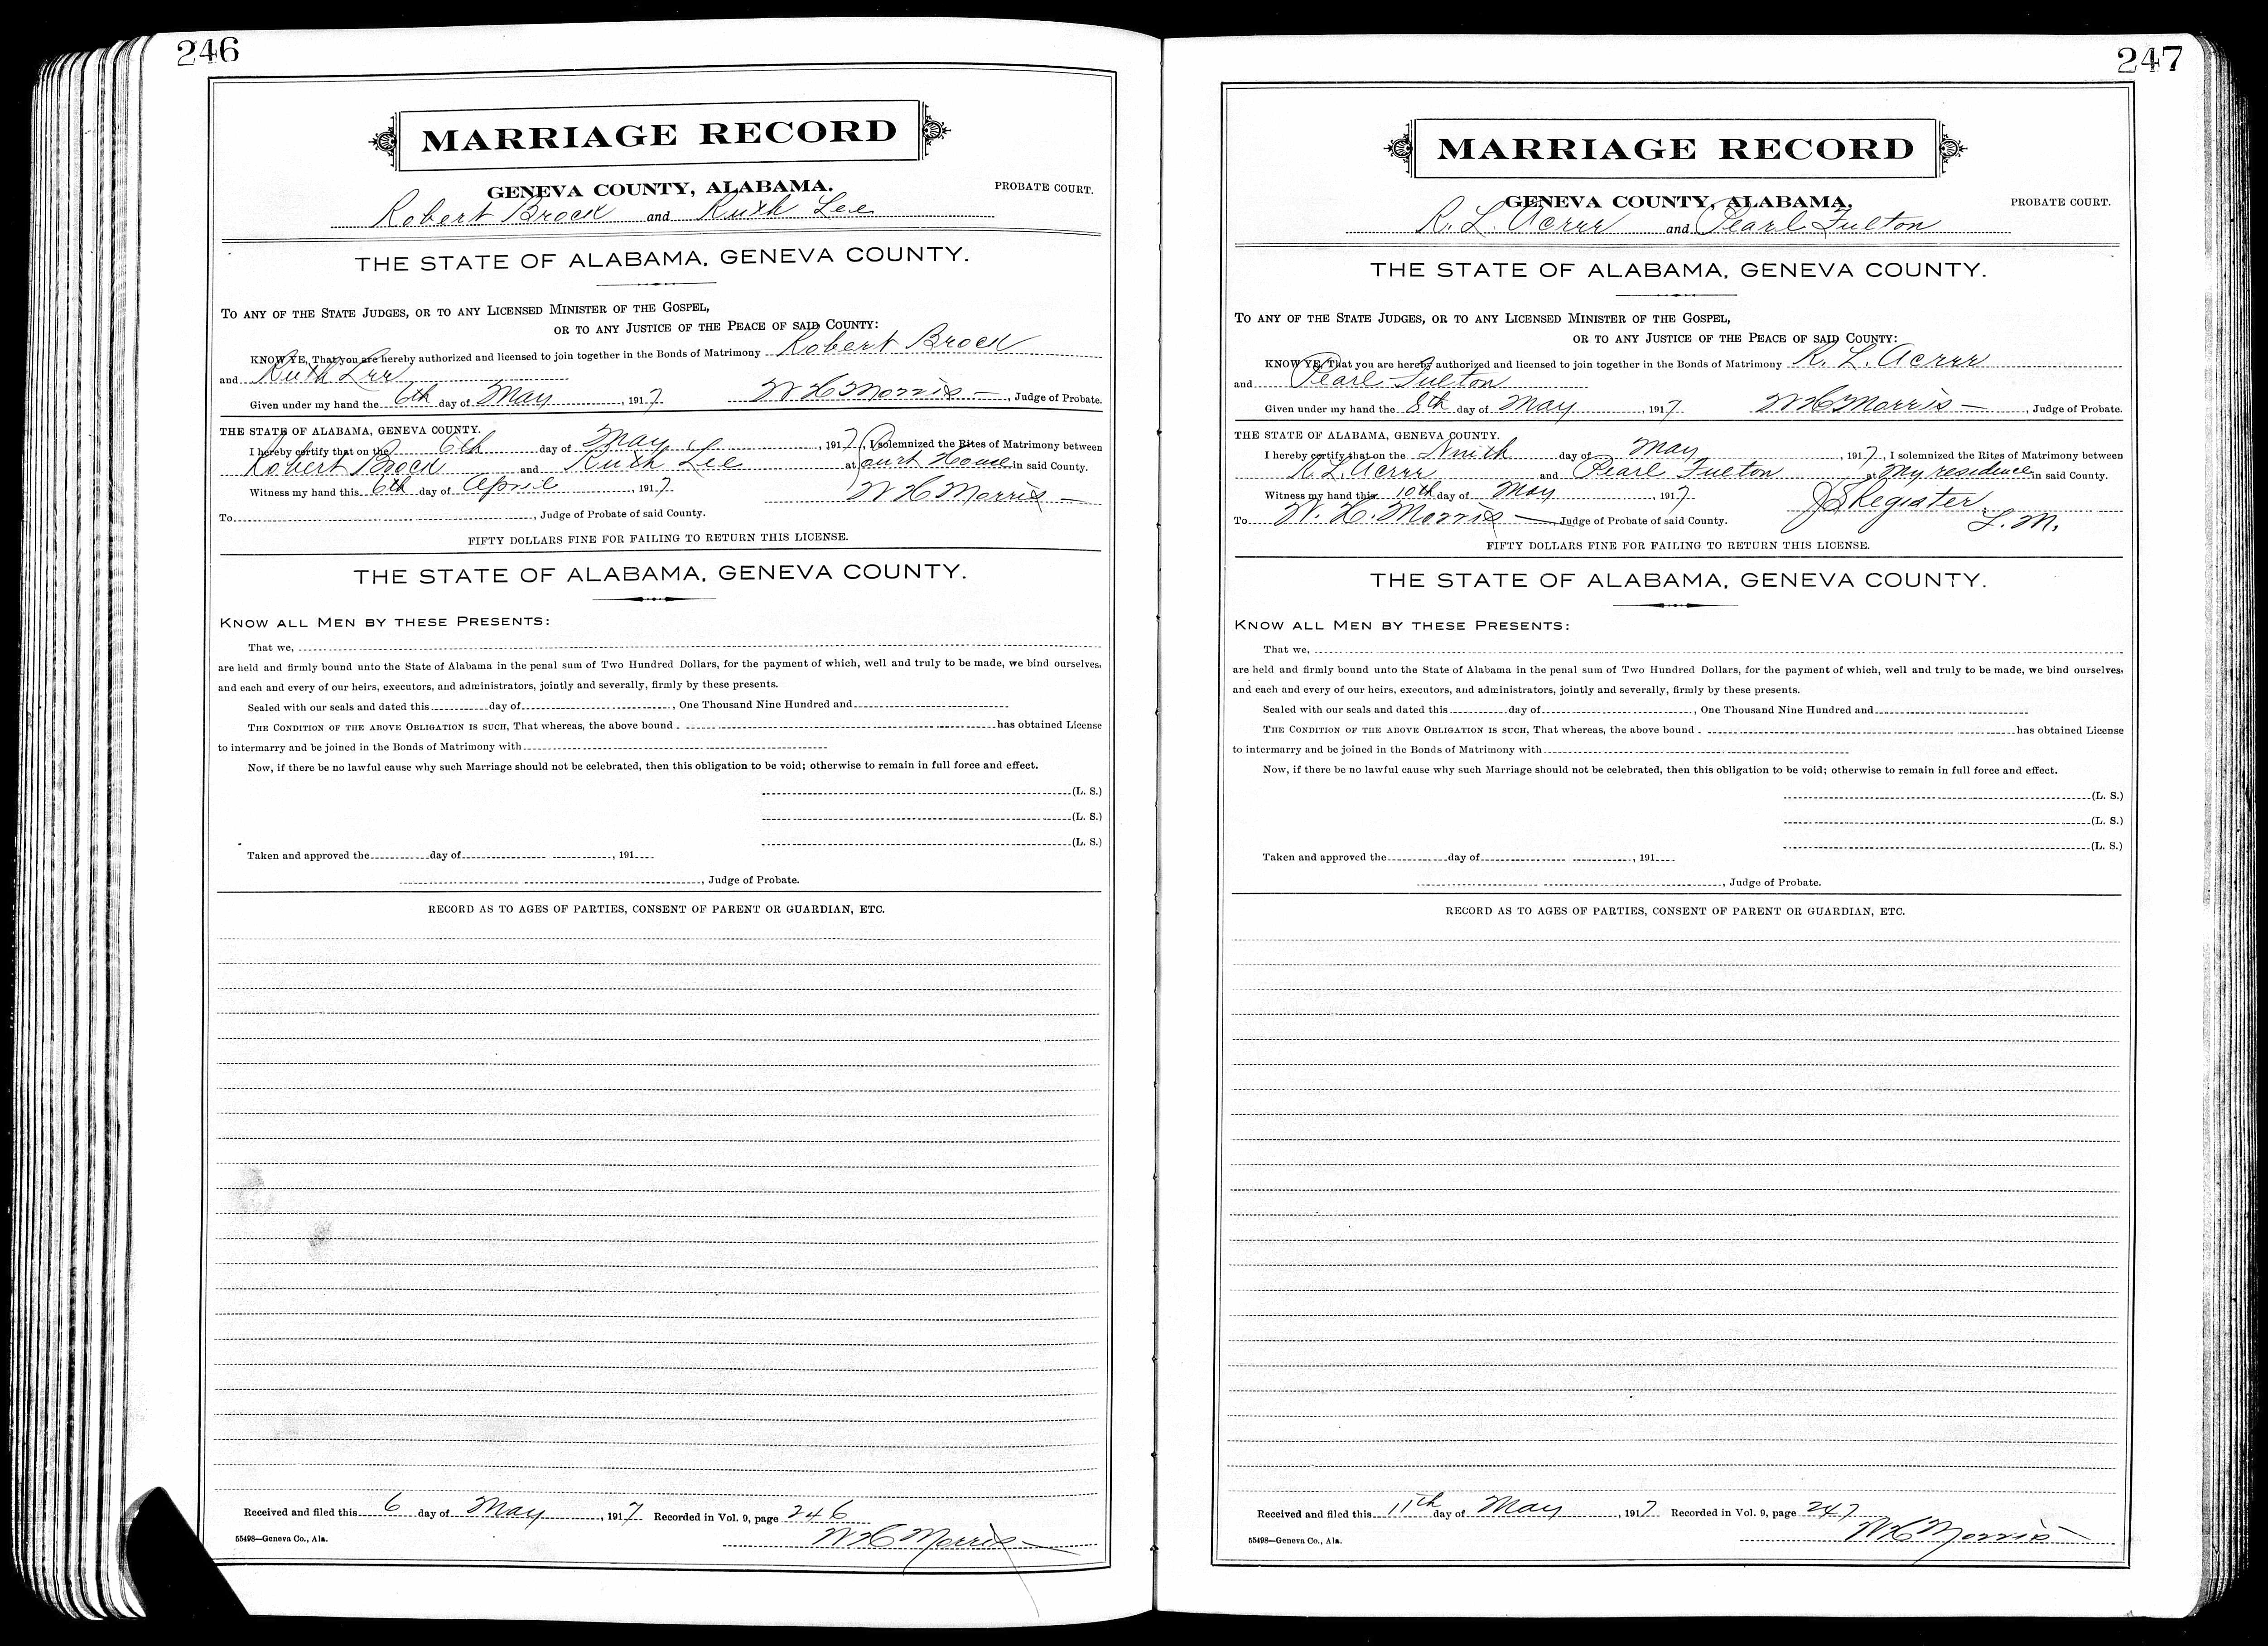 246
MARRIAGE RECORD
GENEVA COUNTY, ALABAMA. PROBATE COURT.
Robert Brock and Ruth Lee
THE STATE OF ALABAMA, GENEVA COUNTY.
To any of the State Judges, or to any Licensed Minister of the Gospel,
or to any Justice of the Peace of said County:
KNOW YE, That you are hereby authorized and licensed to join together in the Bonds of Matrimony Robert Brock
and Ruth Lee
Given under my hand the 6th day of May, 1917 W H Morris, Judge of Probate.
THE STATE OF ALABAMA, GENEVA COUNTY.
I hereby certify that on the 6th day of May, 1917, I solemnized the Rites of Matrimony between
Robert Brock and Ruth Lee at Court House in said County.
Witness my hand this 6th day of April, 1917 W H Morris
To, Judge of Probate of said County.
FIFTY DOLLARS FINE FOR FAILING TO RETURN THIS LICENSE.
THE STATE OF ALABAMA, GENEVA COUNTY.
Know all Men by these Presents:
That we,
are held and firmly bound unto the State of Alabama in the penal sum of Two Hundred Dollars, for the payment of which, well and truly to be made, we bind ourselves,
and each and every of our heirs, executors, and administrators, jointly and severally, firmly by these presents.
Sealed with our seals and dated this day of, One Thousand Nine Hundred and
The Condition of the above Obligation is such, That whereas, the above bound has obtained License
to intermarry and be joined in the Bonds of Matrimony with
Now, if there be no lawful cause why such Marriage should not be celebrated, then this obligation to be void; otherwise to remain in full force and effect.
(L. S.)
(L. S.)
(L. S.)
Taken and approved the day of, 191
, Judge of Probate.
RECORD AS TO AGES OF PARTIES, CONSENT OF PARENT OR GUARDIAN, ETC.
Received and filed this 6 day of May, 1917 Recorded in Vol. 9, page 246
55498—Geneva Co., Ala. W H Morris
247
MARRIAGE RECORD
GENEVA COUNTY, ALABAMA. PROBATE COURT.
R. L. Acree and Pearl Fulton
THE STATE OF ALABAMA, GENEVA COUNTY.
To any of the State Judges, or to any Licensed Minister of the Gospel,
or to any Justice of the Peace of said County:
KNOW YE, That you are hereby authorized and licensed to join together in the Bonds of Matrimony R. L. Acree
and Pearl Fulton
Given under my hand the 8th day of May, 1917 W H Morris, Judge of Probate.
THE STATE OF ALABAMA, GENEVA COUNTY.
I hereby certify that on the Ninth day of May, 1917, I solemnized the Rites of Matrimony between
R. L. Acree and Pearl Fulton at My residence in said County.
Witness my hand this 10th day of May, 1917 J S Register
To W. H. Morris Judge of Probate of said County. L. M.
FIFTY DOLLARS FINE FOR FAILING TO RETURN THIS LICENSE.
THE STATE OF ALABAMA, GENEVA COUNTY.
Know all Men by these Presents:
That we,
are held and firmly bound unto the State of Alabama in the penal sum of Two Hundred Dollars, for the payment of which, well and truly to be made, we bind ourselves,
and each and every of our heirs, executors, and administrators, jointly and severally, firmly by these presents.
Sealed with our seals and dated this day of, One Thousand Nine Hundred and
The Condition of the above Obligation is such, That whereas, the above bound has obtained License
to intermarry and be joined in the Bonds of Matrimony with
Now, if there be no lawful cause why such Marriage should not be celebrated, then this obligation to be void; otherwise to remain in full force and effect.
(L. S.)
(L. S.)
(L. S.)
Taken and approved the day of, 191
, Judge of Probate.
RECORD AS TO AGES OF PARTIES, CONSENT OF PARENT OR GUARDIAN, ETC.
Received and filed this 11th day of May, 1917 Recorded in Vol. 9, page 247
55498—Geneva Co., Ala. W H Morris